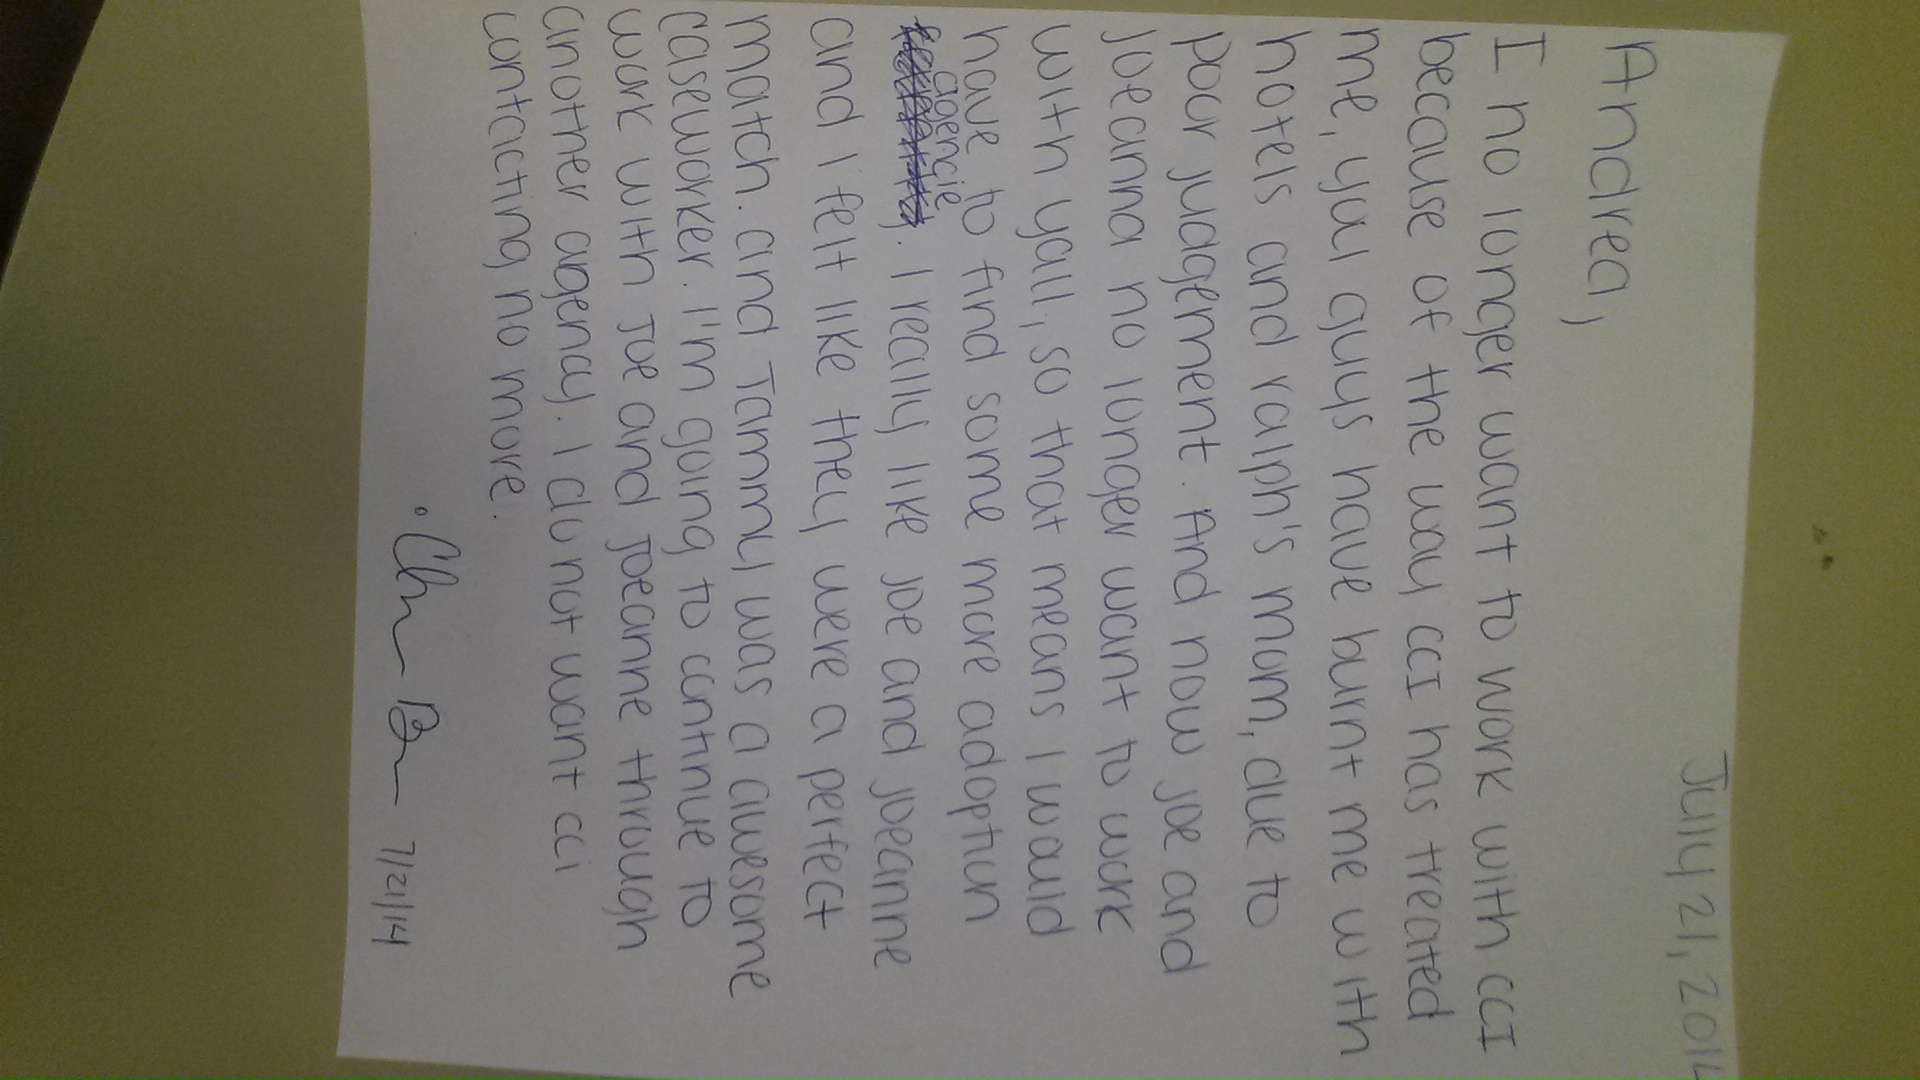 July 21, 201
Andrea,
I no longer want to work with CCI
because of the way CCI has treated
me, you guys have burnt me with
hotels and ralph's mom, due to
poor judgement. And now joe and
joeanna no longer want to work
with yall, so that means I would
have to find some more adoption
agencie
. I really like joe and joeanne
and I felt like they were a perfect
match. and Tammy was a awesome
caseworker. I'm going to continue to
work with Joe and joeanne through
another agency. I do not want cci
contacting no more.
7/21/14